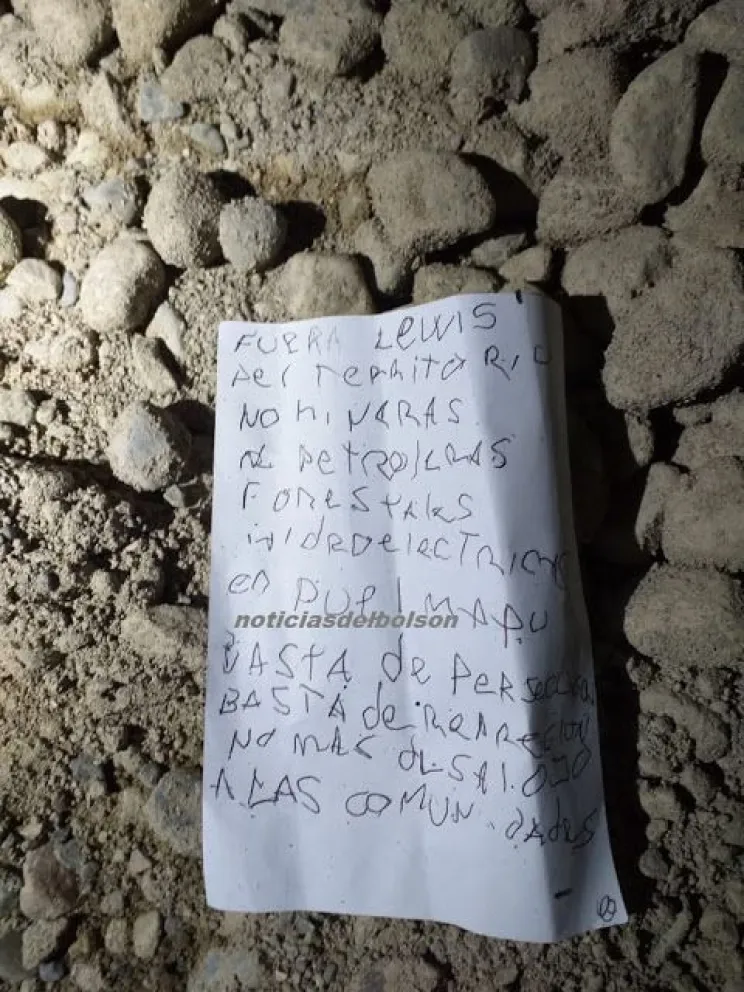 FUERA LEWIS
DEL TERRITORIO
NO MINERAS
NI PETROLERAS
FORESTALES
HIDROELECTRICAS
EN PUELMAPU
noticiasdelbolson
VASTA de PERSECUCION
BASTA de REPRECION
NO MAS DESALOJO
A LAS COMUNIDADES